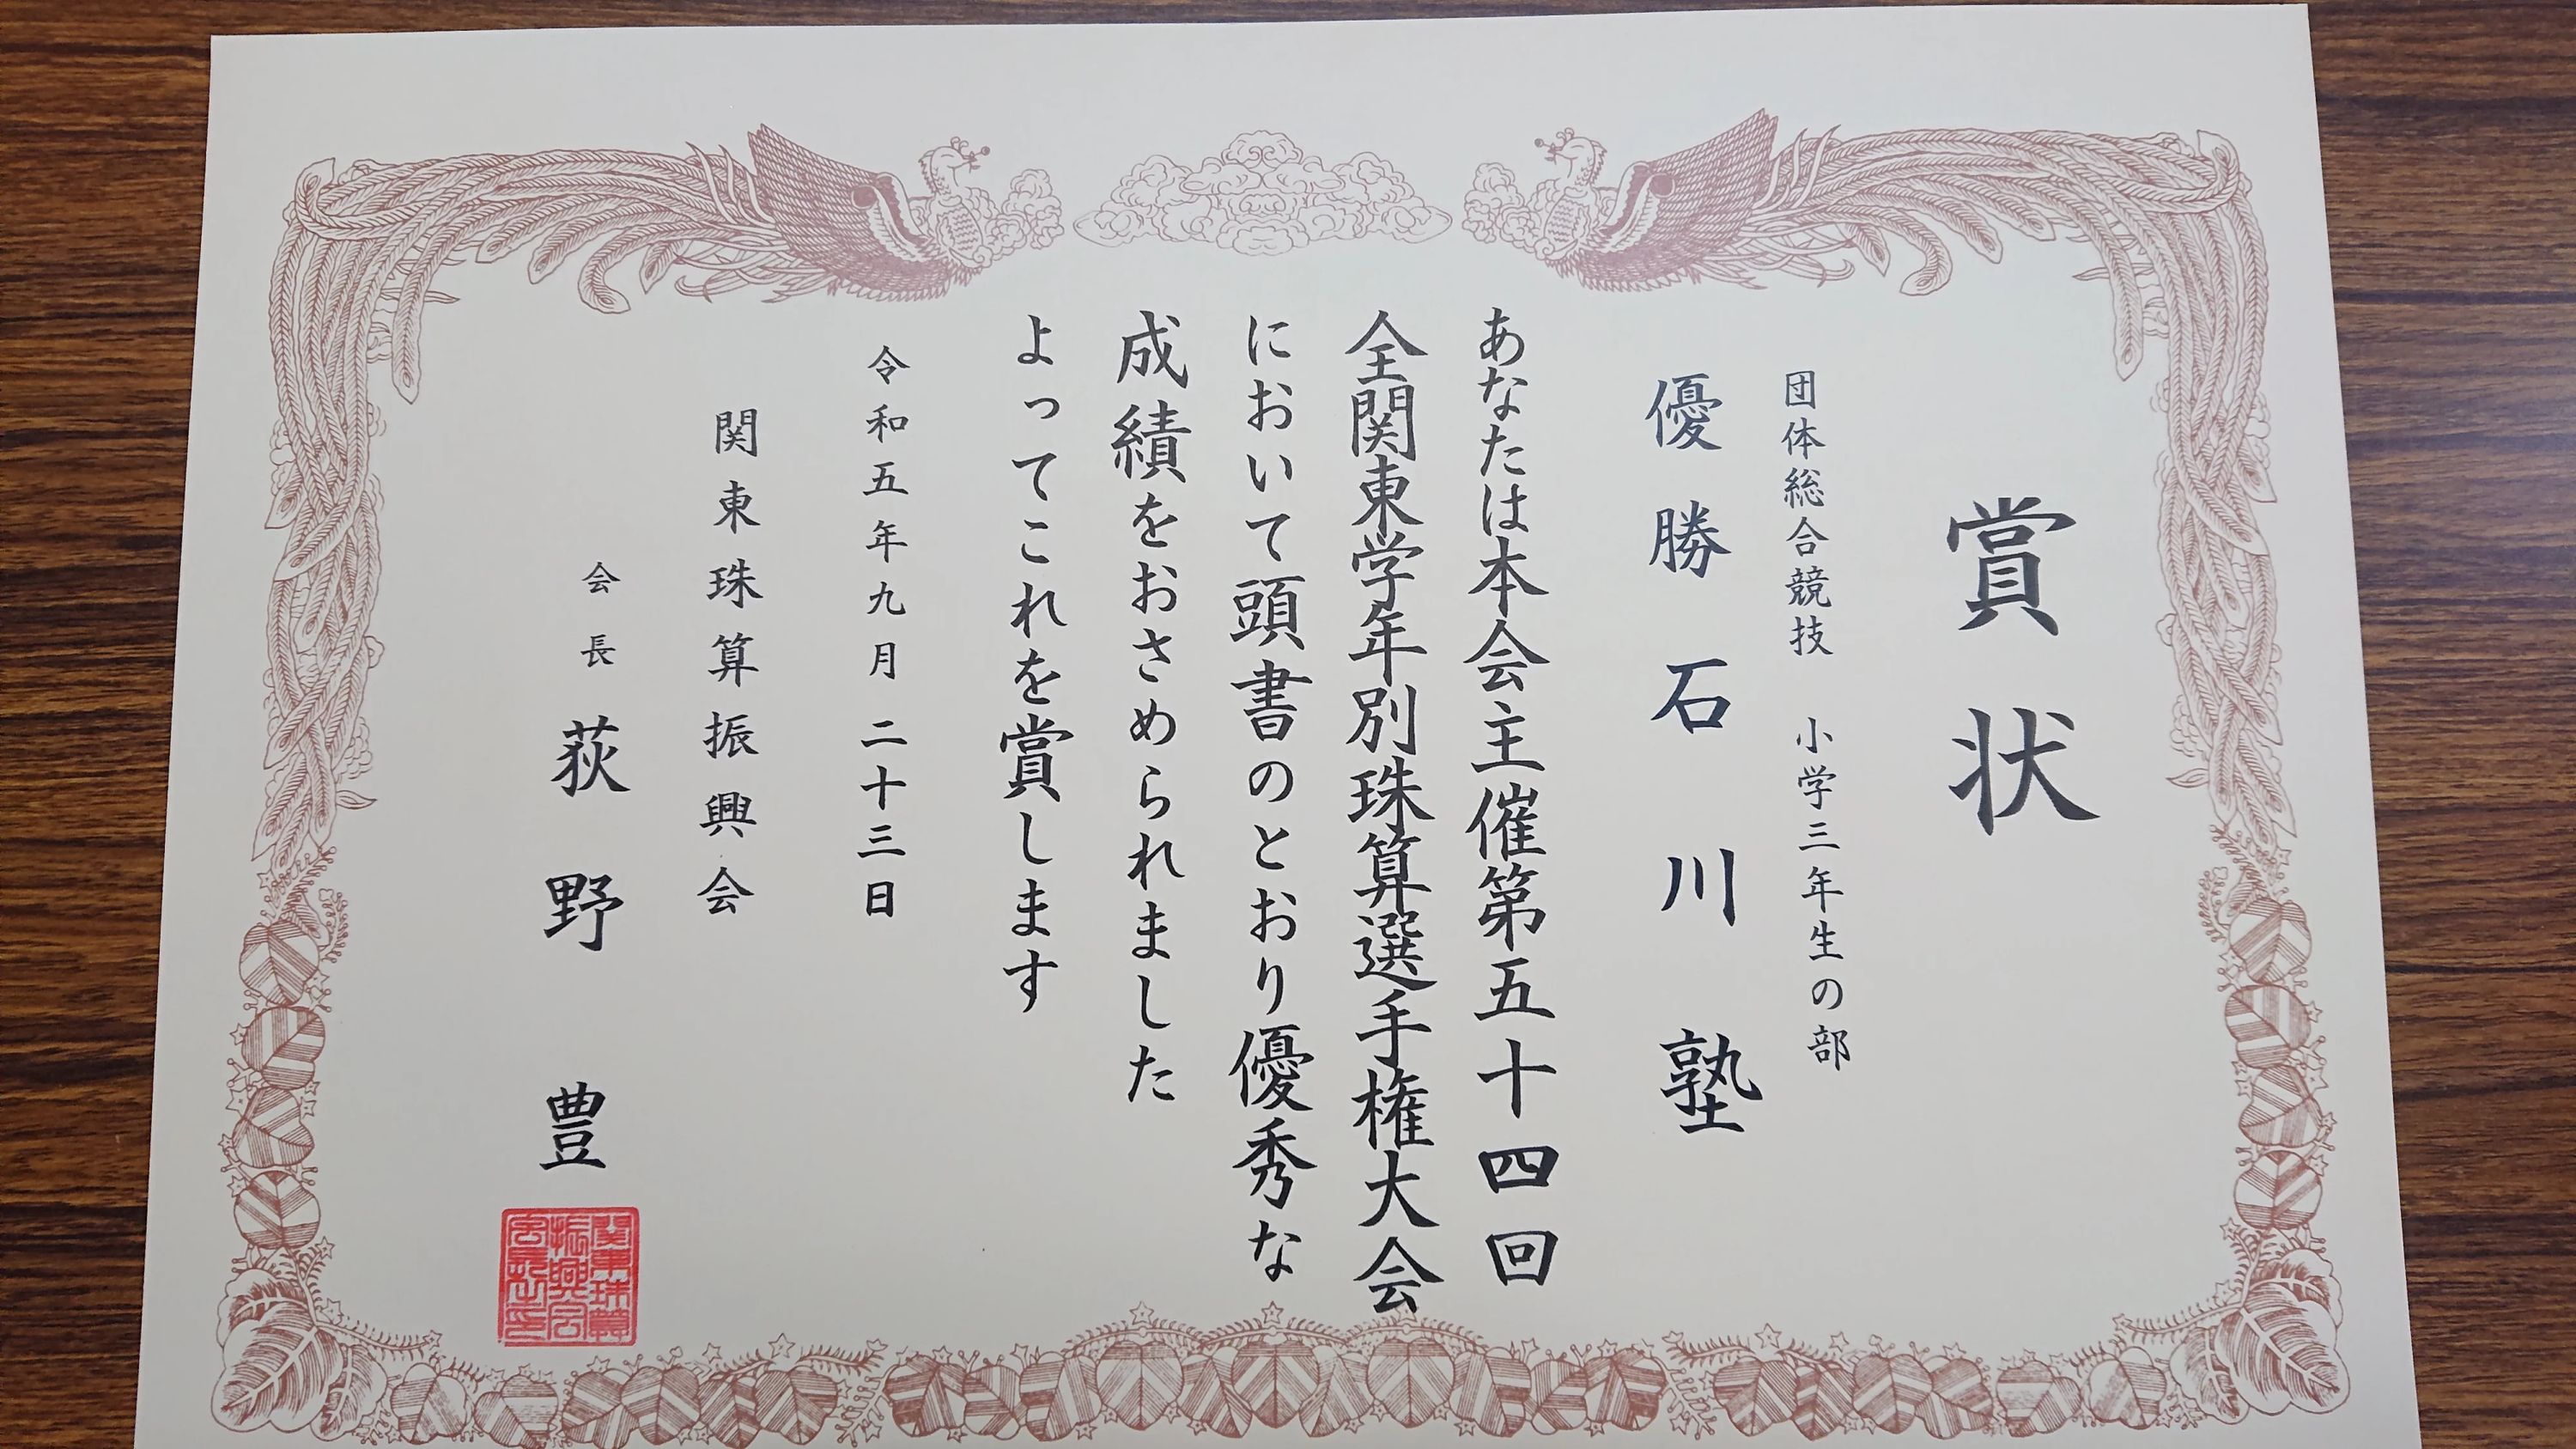 賞状
団体総合競技 小学三年生の部
優勝 石川塾
あなたは本会主催第五十四回
全関東学年別珠算選手権大会
において頭書のとおり優秀な
成績をおさめられました
よってこれを賞します
令和五年九月二十三日
関東珠算振興会
会長 荻野 豊
関東珠算
振興会
会長之印